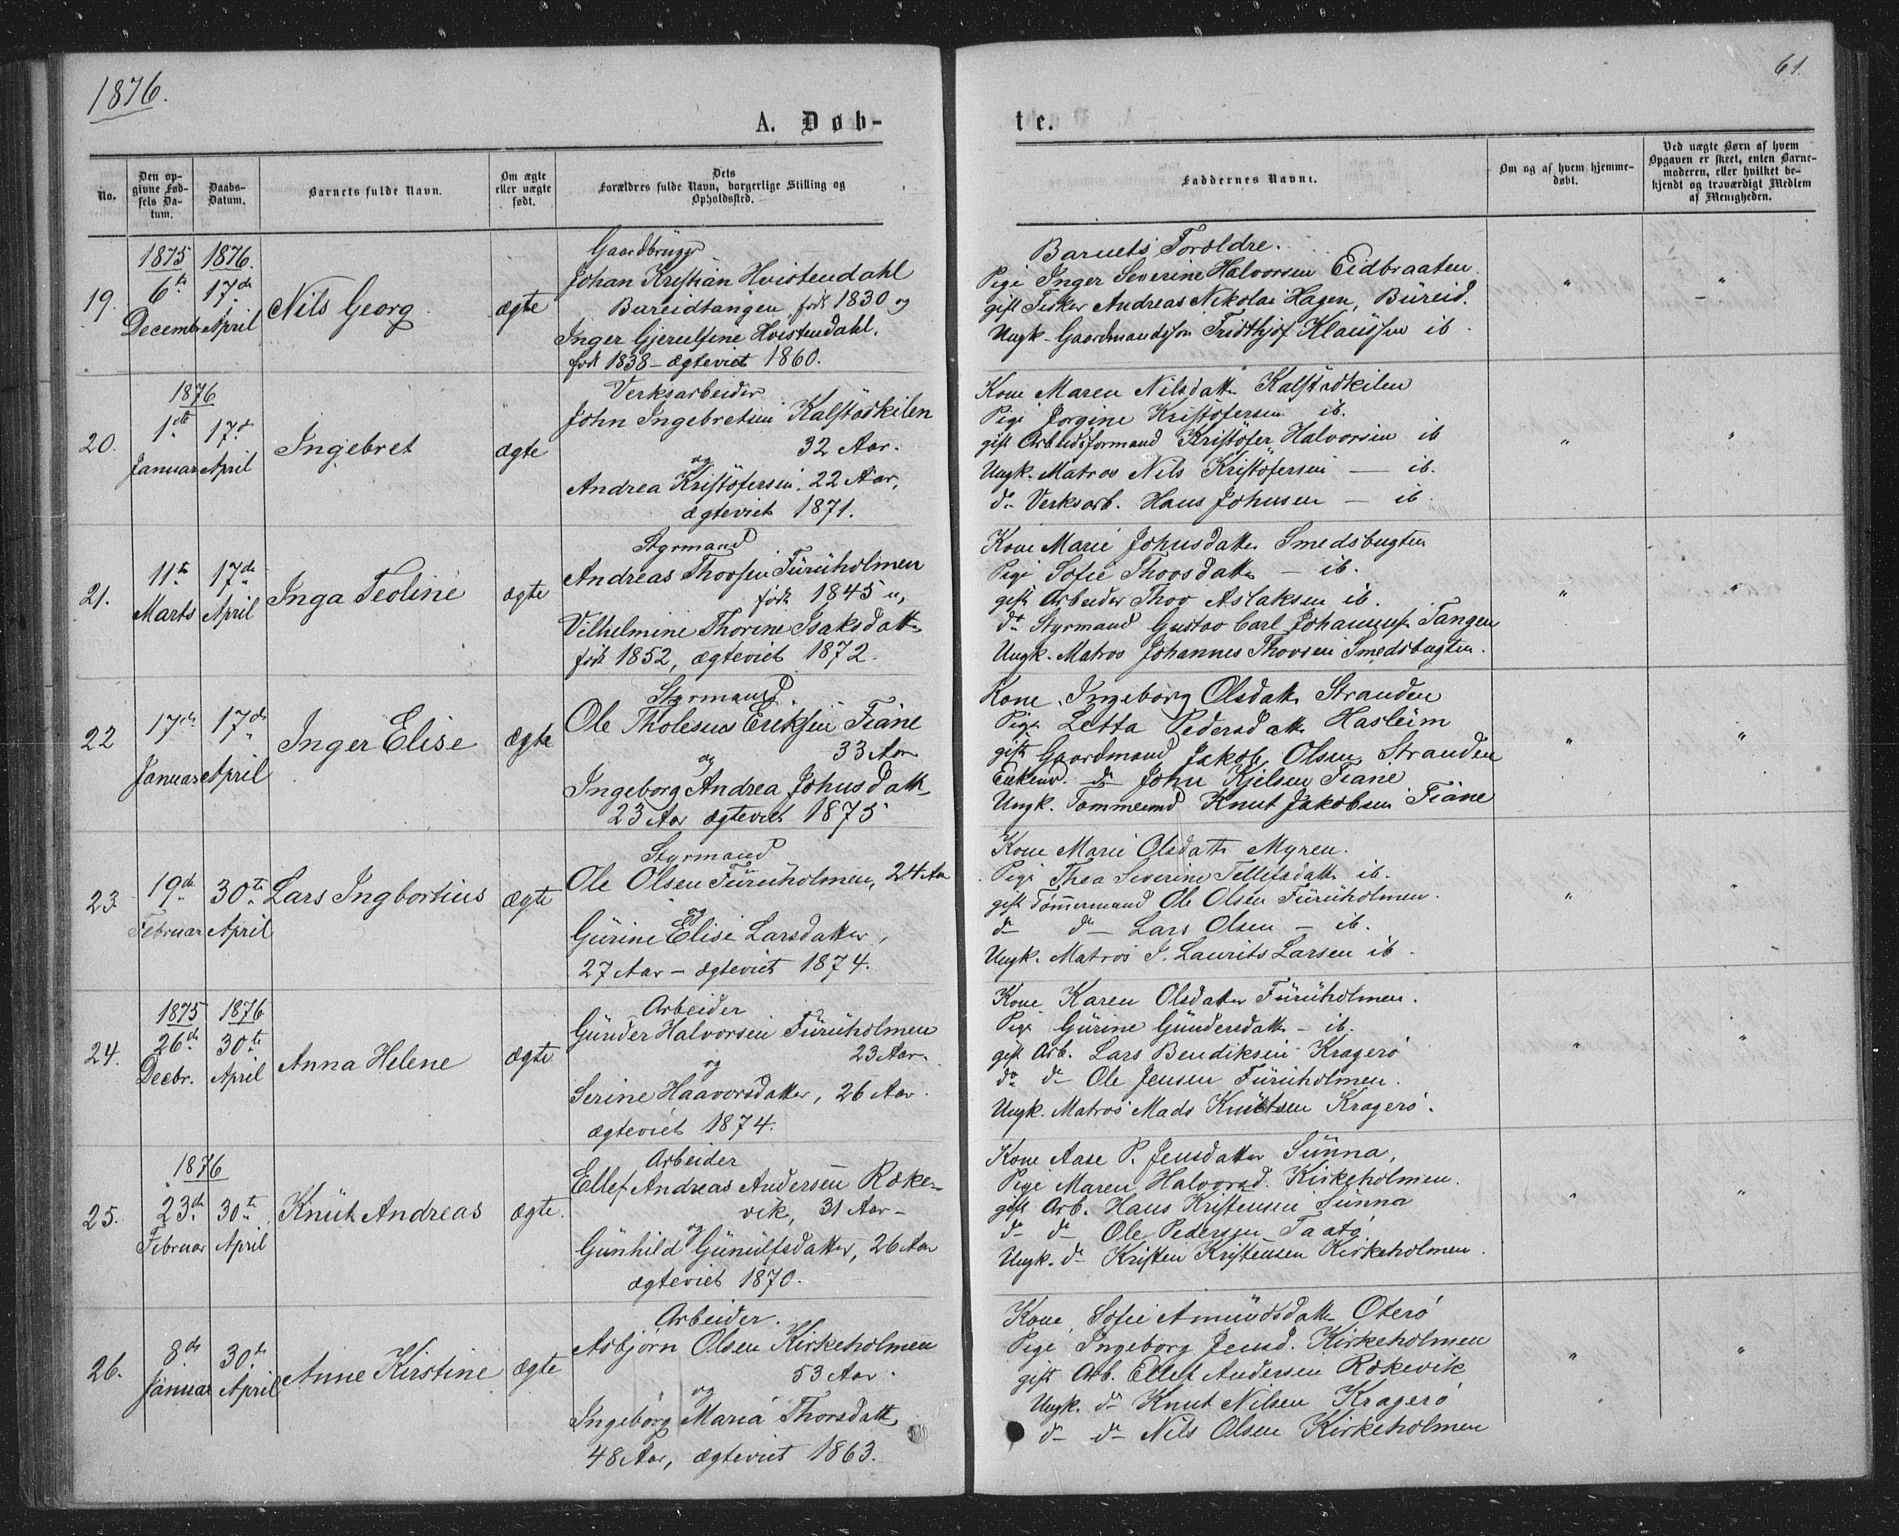 1876.
61.
A. Døb-
te.
No.
Den opgivne Fødsels Datum.
Daabs-Datum.
Barnets fulde Navn.
Om ægte eller uægte født.
Dets Forældres fulde Navn, borgerlige Stilling og Opholdssted.
Faddernes Navne.
Om og af hvem hjemmedøbt.
Ved uægte Børn af hvem Opgaven er skeet, enten Barnemoderen, eller hvilket bekjendt og troværdigt Medlem af Menigheden.
19.
1875
6te
Decemb
1876.
17de
April
Nils Georg
ægte
Gaardbruger
Johan Kristian Hvistendahl
Bureidtangen, født 1830 og
Inger Gjerulfine Hvistendahl.
født 1838 – ægteviet 1860.
Barnets Forældre.
Pige Inger Severine Halvorsen Eidbraaten.
gift Fisker Andreas Nikolai Hagen, Büreid.
Ungk. Gaardmandssøn Fridthjof Klaussen ib.
"
– "
20.
1876
1ste
Januar
17de
April
Ingebret
ægte
Verksarbeider
John Ingebretsen Kalstadkilen
32 Aar.
og
Andrea Kristofersen. 22 Aar,
ægteviet 1871.
Kone Maren Nilsdatter Kalstadkilen
Pige Jorgine Kristofersen ib.
gift Arbeidsformand Kristofer Halvorsen ib
Ungk. Matros Nils Kristofersen – ib.
do Verksarb. Hans Johnsen – ib.
"
"
21.
11te
Marts
17de
April
Inga Teoline
ægte
Styrmand
Andreas Thorsen Furuholmen
født 1845 og
Vilhelmine Thorine Isaksdatter
født 1852, ægteviet 1872.
Kone Marie Johnsdatter Smedsbugten
Pige Sofie Thorsdatter – ib.
gift Arbeider Thor Aslaksen ib.
do Styrmand Gustav Carl Johannes. Tangen
Ungk. Matros Johannes Thorsen Smedsbugten.
"
"
22
17de
Januar
17de
April
Inger Elise
ægte
Styrmand.
Ole Tholesius Eriksen Fiane
33 Aar
og
Ingeborg Andrea Johnsdatter
23 Aar ægteviet 1875
Kone Ingeborg Olsdatter Stranden
Pige Letta Pedersdatter Hasleim
gift Gaardmand Jakob Olsen Stranden
Enkem. do John Kjelsen Fiane
Ungk. Tømmermd Knut Jakobsen Fiane
"
"
23.
19de
Februar
30te
April
Lars Ingbortius
ægte
Styrmand
Ole Olsen Furuholmen, 24 Aar
og
Gurine Elise Larsdatter,
27 Aar – ægteviet 1874.
Kone Marie Olsdatter Myren.
Pige Thea Severine Tellefsdatter ib.
gift Tømmermand Ole Olsen Furuholmen.
do do – Lars Olsen – ib.
Ungk. Matros J. Laurits Larsen ib.
"
"
24.
1875
26de
Decbr.
1876
30te
April
Anna Helene
ægte
Arbeider
Gunder Halvorsen Furuholmen
23 Aar.
og
Serine Haavorsdatter, 26 Aar.
ægteviet 1874.
Kone Karen Olsdatter Furuholmen.
Pige Gurine Gundersdatter – ib.
gift Arb. Lars Bendiksen Kragerø
do do Ole Jensen Furuholmen.
Ungk. Matros Mads Knutsen Kragerø.
"
"
25.
1876
23de
Februar
30te
April
Knut Andreas
ægte.
Arbeider
Ellef Andreas Andersen Røke-
vik, 31 Aar –
og
Gunhild Gunulfsdatter, 26 Aar
ægteviet 1870.
Kone Aase P. Jensdatter Sunna,
Pige Maren Halvorsd. Kirkeholmen.
gift Arb. Hans Kristensen Sunna
do do Ole Pedersen Taatø
Ungk. do Kristen Kristensen Kirkeholmen.
"
"
26.
8de
Januar
30te
April
Anne Kirstine
ægte
Arbeider.
Asbjørn Olsen Kirkeholmen
53 Aar.
og
Ingeborg Maria Thorsdatter
48 Aar, ægteviet 1863.
Kone Sofie Amundsdatter Oterø
Pige Ingeborg Jensd. Kirkeholmen
gift Arb. Ellef Andersen Røkevik
Ungk. do Knut Nilsen Kragerø
do do Nils Olsen Kirkeholmen
"
"